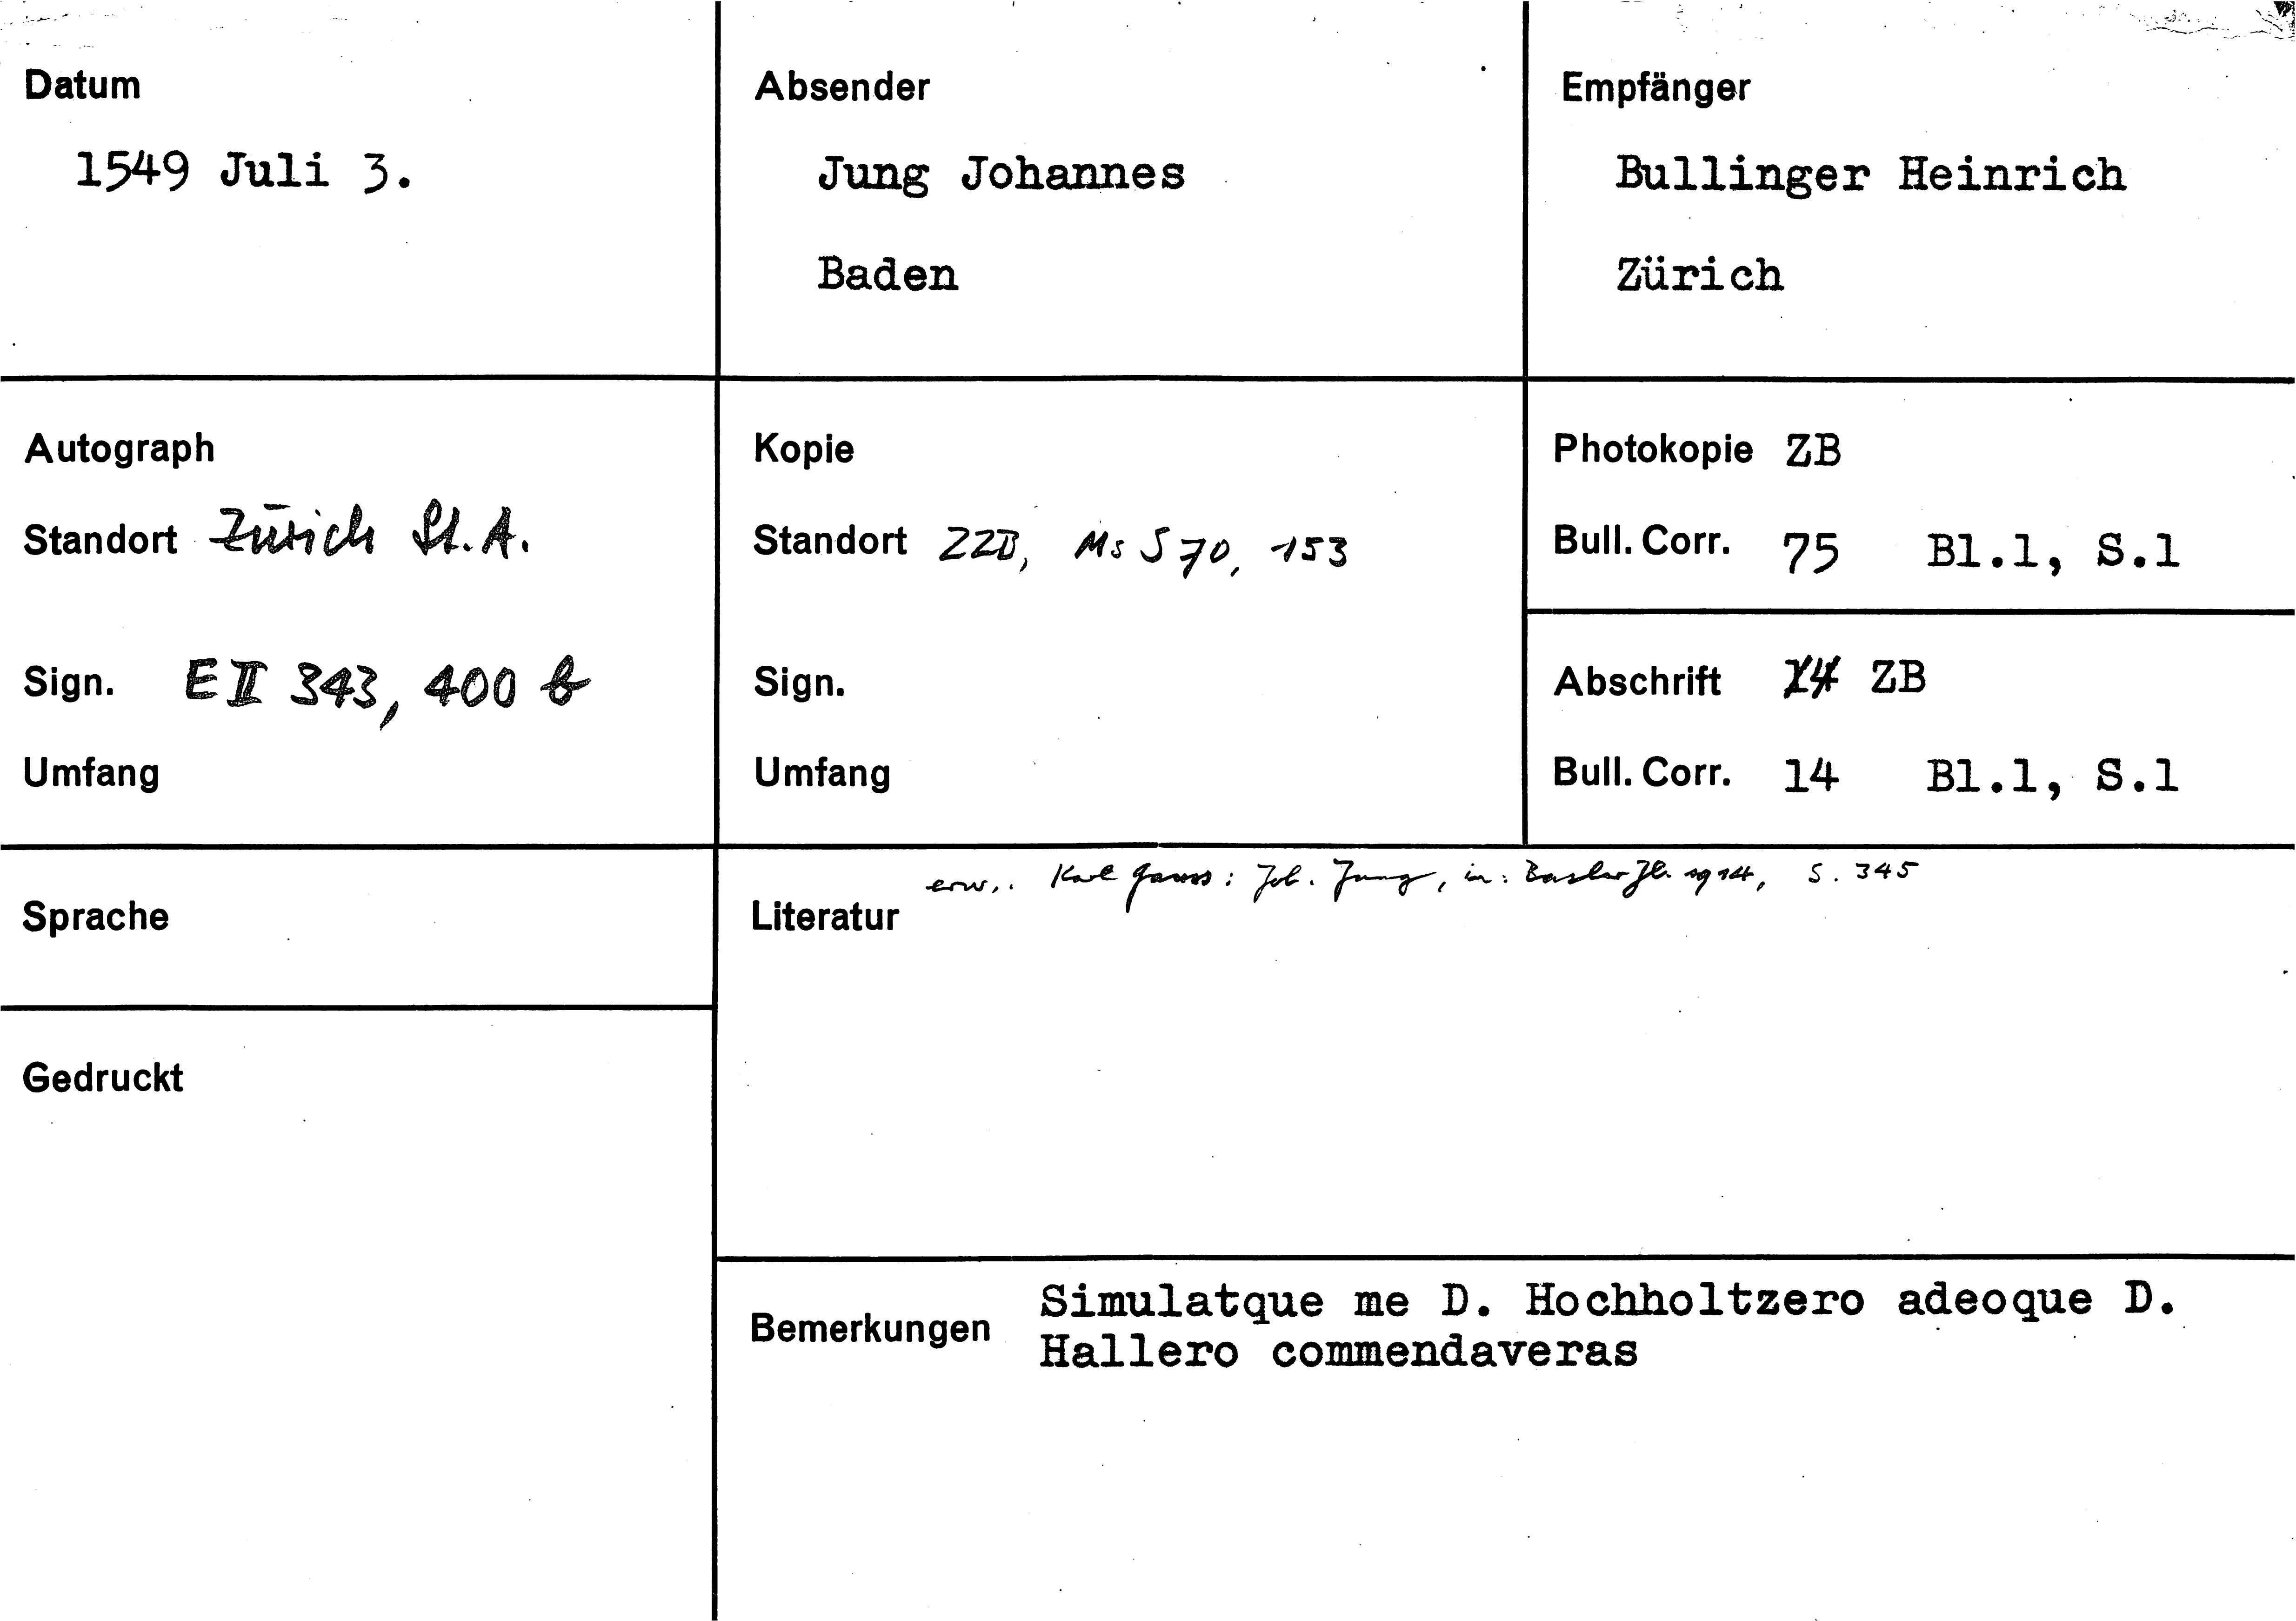 Datum
1549 Juli 3.
Absender
Jung Johannes
Baden
Empfänger
Bullinger Heinrich
Zürich
Autograph
Standort Zürich St.A.
Sign. E II 343, 400 b
Umfang
Kopie
Standort ZZB, Ms S 70, 153
Sign.
Umfang
Photokopie ZB
Bull. Corr. 75 Bl.1, S.1
Abschrift 14 ZB
Bull. Corr. 14 Bl.1, S.1
Sprache
Gedruckt
erw.: Karl Gauss: Joh. Jung, in: Basler Jb. 1914, S. 345
Literatur
Bemerkungen Simulatque me D. Hochholtzero adeoque D.
Hallero commendaveras